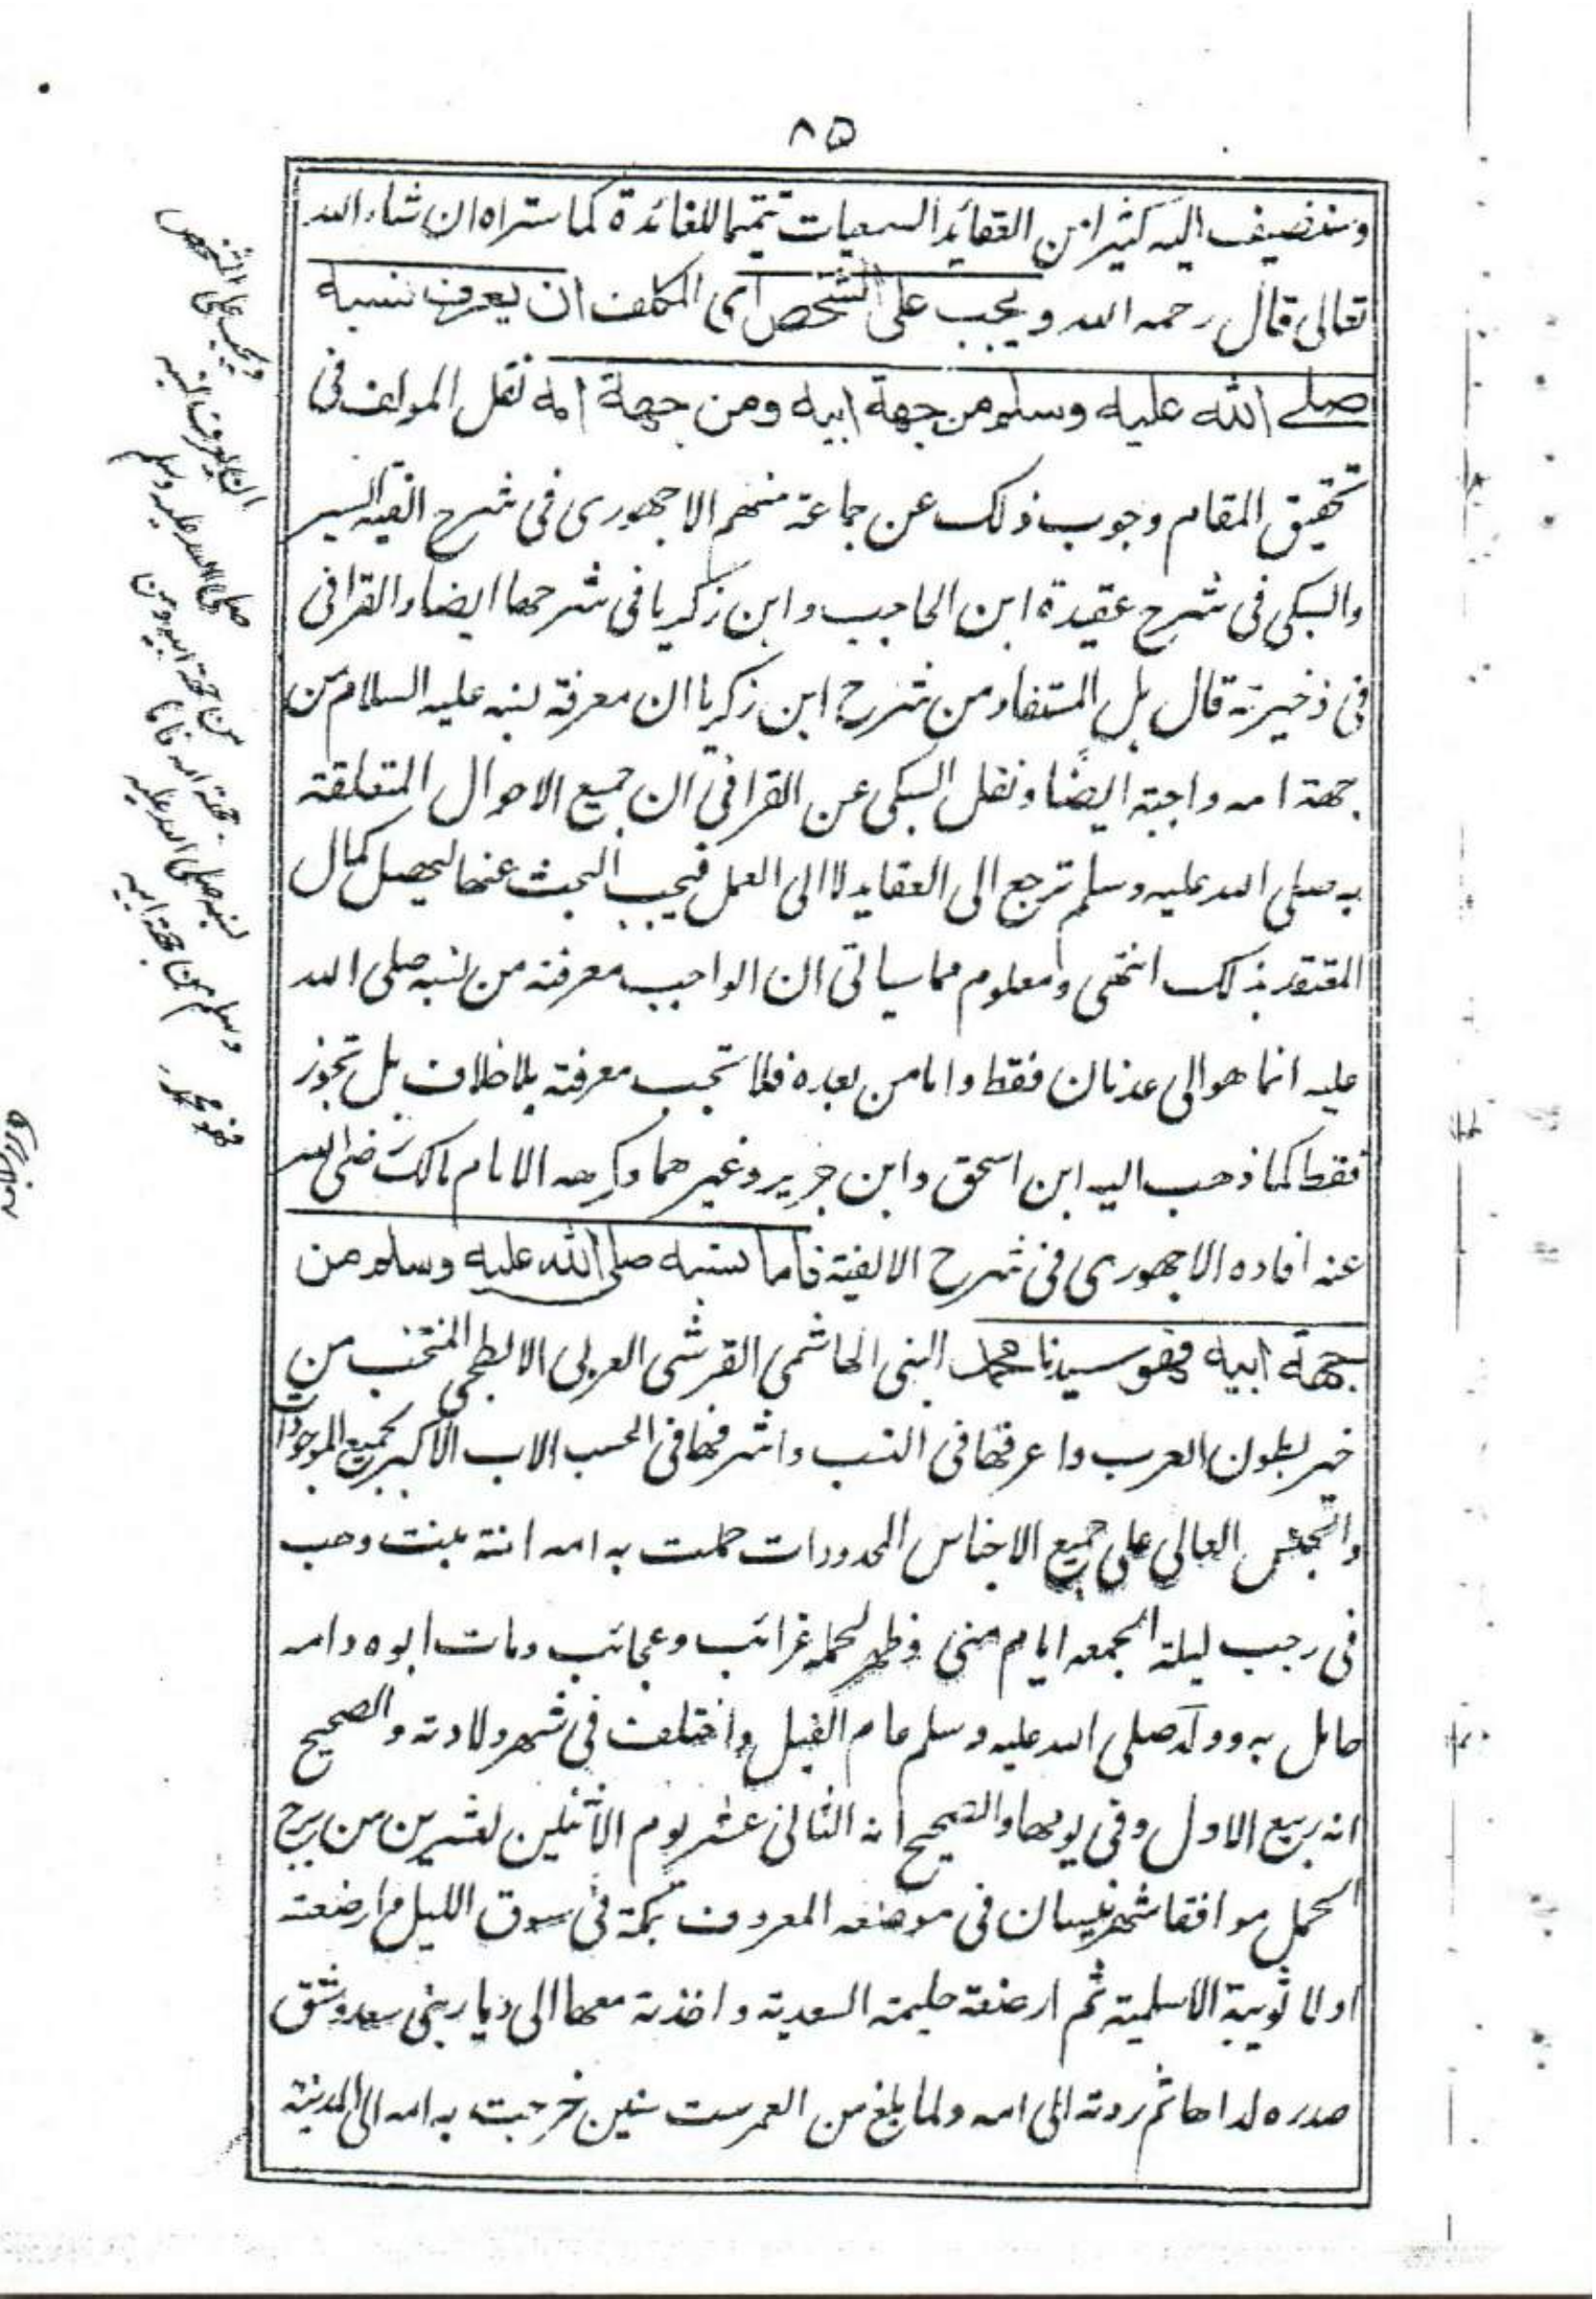 ٨٥
وسنضيف اليه كثيرا من العقائد السمعيات تتميما للفائدة كما ستراه ان شاء الله
تعالى قال رحمه الله ويجب على الشخص اى المكلف ان يعرف نسبه
صلى الله عليه وسلم من جهة ابيه ومن جهة امه نقل المولف فى
تحقيق المقام وجوب ذلك عن جماعة منهم الاجهورى فى شرح الفية السير
والسبكى فى شرح عقيدة ابن الحاجب وابن زكريا فى شرحها ايضا والقرافى
فى ذخيرته قال بل المستفاد من شرح ابن زكريا ان معرفة نسبه عليه السلام من
جهة امه واجبة ايضا ونقل السبكى عن القرافى ان جميع الاحوال المتعلقة
به صلى الله عليه وسلم ترجع الى العقايد لا الى العمل فيجب البحث عنها ليحصل كمال
المعتقد بذلك انتهى ومعلوم مما سياتى ان الواجب معرفته من نسبه صلى الله
عليه انما هو الى عدنان فقط واما من بعده فلا تجب معرفته بلا خلاف بل تجوز
فقط كما ذهب اليه ابن اسحق وابن جرير وغيرهما وكرهه الامام مالك رضى الله
عنه افاده الاجهورى فى شرح الالفية فاما نسبه صلى الله عليه وسلم من
جهة ابيه فهو سيدنا محمد النبى الهاشمى القرشى العربى الابطحى المنتخب من
خير بطون العرب واعرقها فى النسب واشرفها فى الحسب الاب الاكبر لجميع الموجودات
والجنس العالى على جميع الاجناس المحدودات حملت به امه امنة بنت وهب
فى رجب ليلة الجمعه ايام منى وظهر لحمله غرائب وعجائب ومات ابوه وامه
حامل به وولد صلى الله عليه وسلم عام الفيل واختلف فى شهر ولادته والصحيح
انه ربيع الاول وفى يومها والصحيح انه الثانى عشر يوم الاثنين لعشرين من برج
الحمل موافقا شهر نيسان فى موضعه المعروف بمكة فى سوق الليل وارضعته
اولا ثويبة الاسلمية ثم ارضعته حليمة السعدية واخذته معها الى ديار بنى سعد وشق
صدره لداها ثم ردته الى امه ولما بلغ من العمر ست سنين خرجت به امه الى المدينة
ويجب على الشخص
ان يعرف نسبه
صلى الله عليه وسلم
من جهة ابيه ومن
جهة امه فاما
نسبه صلى الله عليه
وسلم من جهة ابيه
فهو محمد